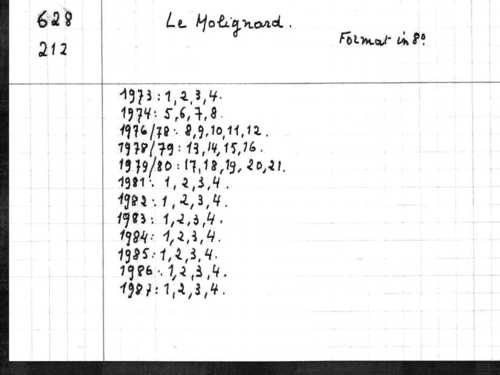 628
212
Le Molignard.
Format in 8º.
1973: 1, 2, 3, 4.
1974: 5, 6, 7, 8.
1976/78: 8, 9, 10, 11, 12.
1978/79: 13, 14, 15, 16.
1979/80: 17, 18, 19, 20, 21.
1981: 1, 2, 3, 4.
1982: 1, 2, 3, 4.
1983: 1, 2, 3, 4.
1984: 1, 2, 3, 4.
1985: 1, 2, 3, 4.
1986: 1, 2, 3, 4.
1987: 1, 2, 3, 4.